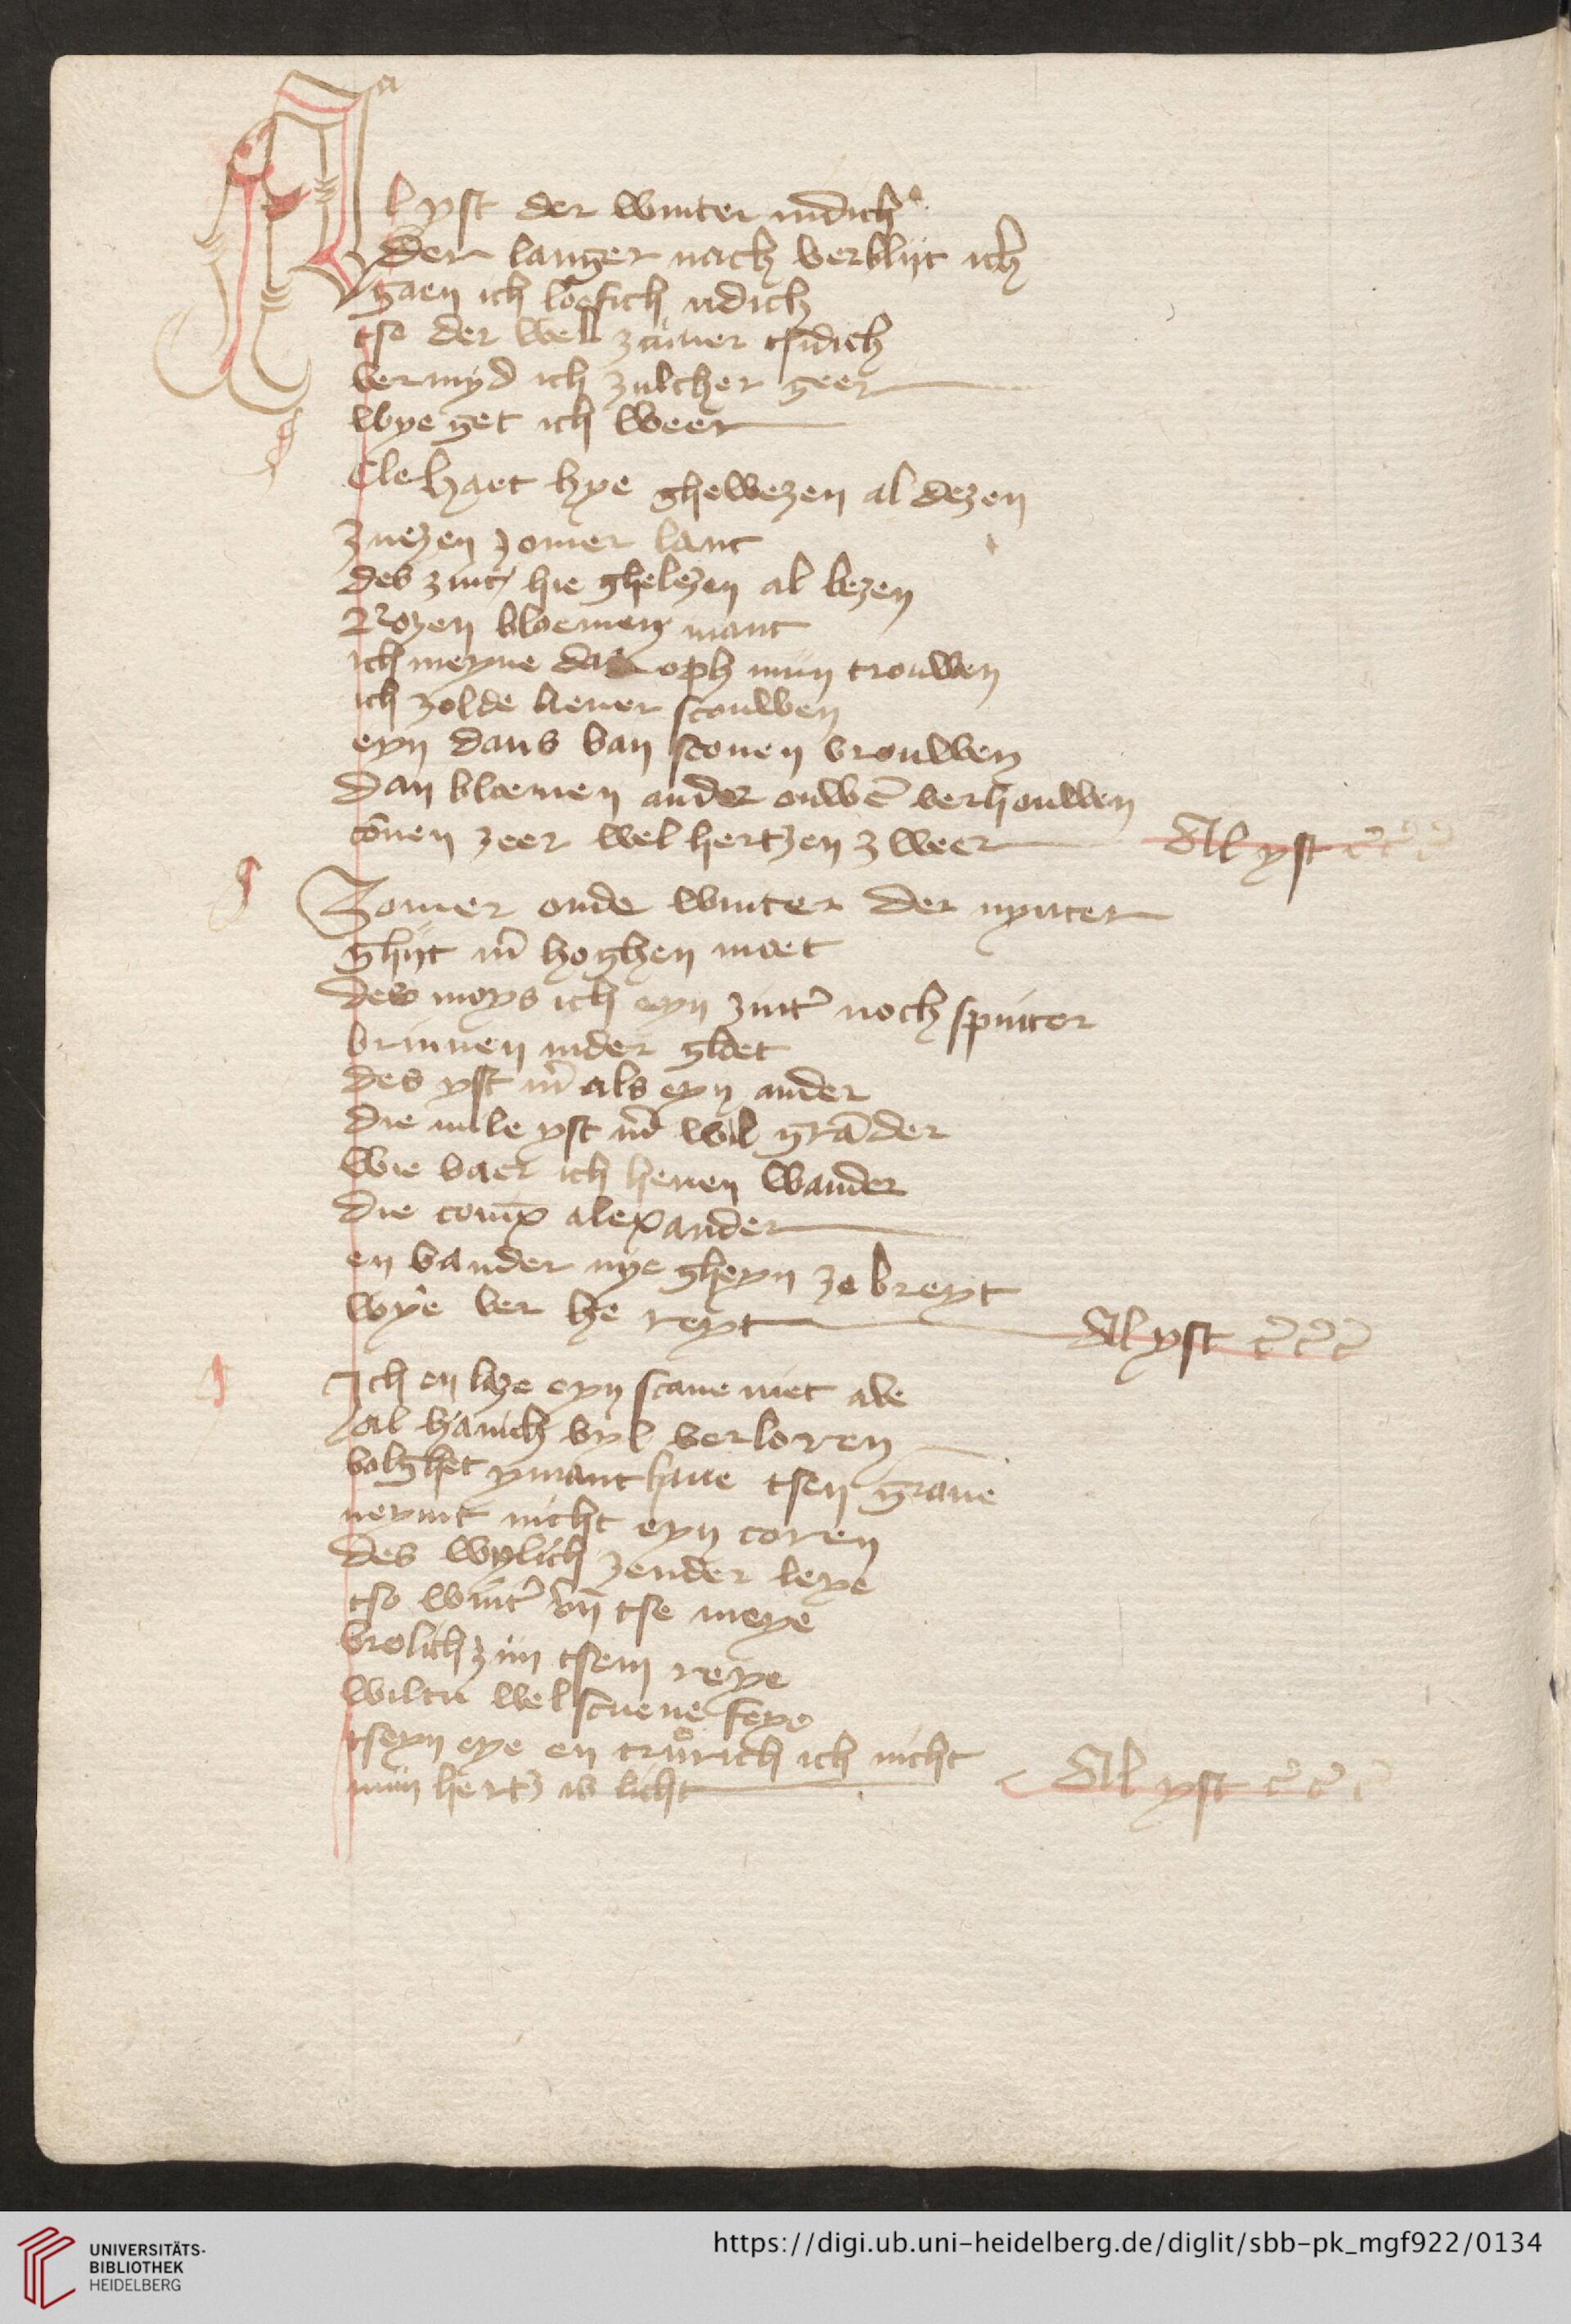 Alyst der winter nidich
der langer nach verblijt ich
gaen ich loefich udich
tso der well zumer tsidich
vermyd ich zulcher geer
wye get ich weer
Ele haet hye ghewezen al dezen
zuezen zomer lant
des zint hie ghelezen al bezen
Rozen bloemen mant
ich meyne daz oph miin trouwen
ich zolde liever scouwen
eyn dans van sconen vrouwen
dan bloemen ander ouwē verhouwen
cōnen zeer wel hertzen zweer Al yst
Zomer onde winter der nynter
ghijt in hoghen moet
des moys ich eyn zint noch spinter
brinnen inder gloet
des yst m als eyn ander
die mile yst wil grāder
wie vaer ich henen wander
die conīx alexander
en vander nye gheyn ze breyt
wye ver he reyt Al yst
Ich en laze eyn scaue niet abe
al hanich vyl verloren
volghet ymant haue tsen graue
neymt nicht eyn coren
des wylich zender leye
tso wint vn̄ tse meye
vrolich ziin tsem reye
wiltu wel scuene feye
tseyn eye en trůrich ich nicht
miin hertz is licht Al yst
UNIVERSITÄTS-
BIBLIOTHEK
HEIDELBERG
https://digi.ub.uni-heidelberg.de/diglit/sbb-pk_mgf922/0134